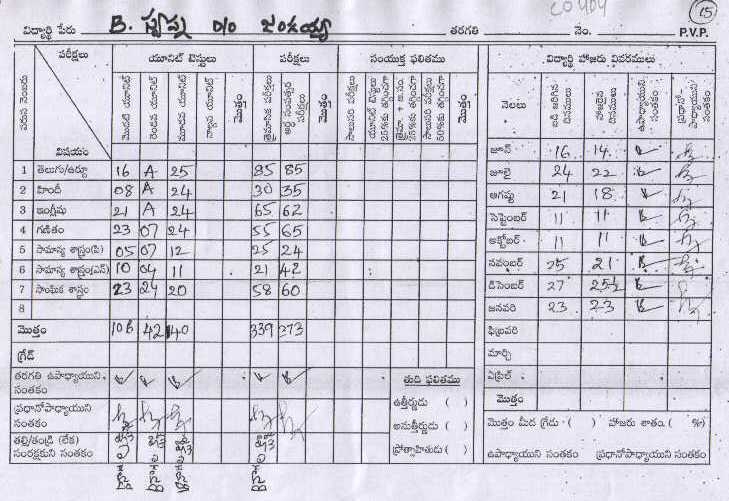 CO404
15
విద్యార్థి పేరు B. స్వప్న D/O జంగయ్య తరగతి నెం. P.V.P.
వరుస నెంబరు పరీక్షలు యూనిట్ టెస్టులు పరీక్షలు సంయుక్త ఫలితము విద్యార్థి హాజరు వివరములు
విషయం మొదటి యూనిట్ రెండవ యూనిట్ మూడవ యూనిట్ మొత్తం త్రైమాసిక పరీక్షలు అర్ధ సంవత్సర పరీక్షలు మొత్తం మొత్తం
నెలలు బడి జరిగిన దినములు హాజరైన దినములు ఉపాధ్యాయుని సంతకం ప్రధానోపాధ్యాయుని సంతకం
1 తెలుగు/ఉర్దూ 16 A 25 85 85
2 హిందీ 08 A 24 30 35
3 ఇంగ్లీషు 21 A 24 65 62
4 గణితం 23 07 24 55 65
5 సామాన్య శాస్త్రం(పి) 05 07 12 25 24
6 సామాన్య శాస్త్రం(ఎన్) 10 04 11 21 42
7 సాంఘిక శాస్త్రం 23 24 20 58 60
8
మొత్తం 106 42 140 339 373
గ్రేడ్
తరగతి ఉపాధ్యాయుని సంతకం
ప్రధానోపాధ్యాయుని సంతకం
తల్లి/తండ్రి (లేక) సంరక్షకుని సంతకం
తుది ఫలితము
ఉత్తీర్ణుడు ( )
అనుత్తీర్ణుడు ( )
ప్రోత్సాహితుడు ( )
జూన్ 16 14
జూలై 24 22
ఆగష్టు 21 18
సెప్టెంబర్ 11 11
అక్టోబర్ 11 11
నవంబర్ 25 21
డిసెంబర్ 27 25½
జనవరి 23 23
ఫిబ్రవరి
మార్చి
ఏప్రిల్
మొత్తము
మొత్తం మీద గ్రేడు ( ) హాజరు శాతం ( %)
ఉపాధ్యాయుని సంతకం ప్రధానోపాధ్యాయుని సంతకం